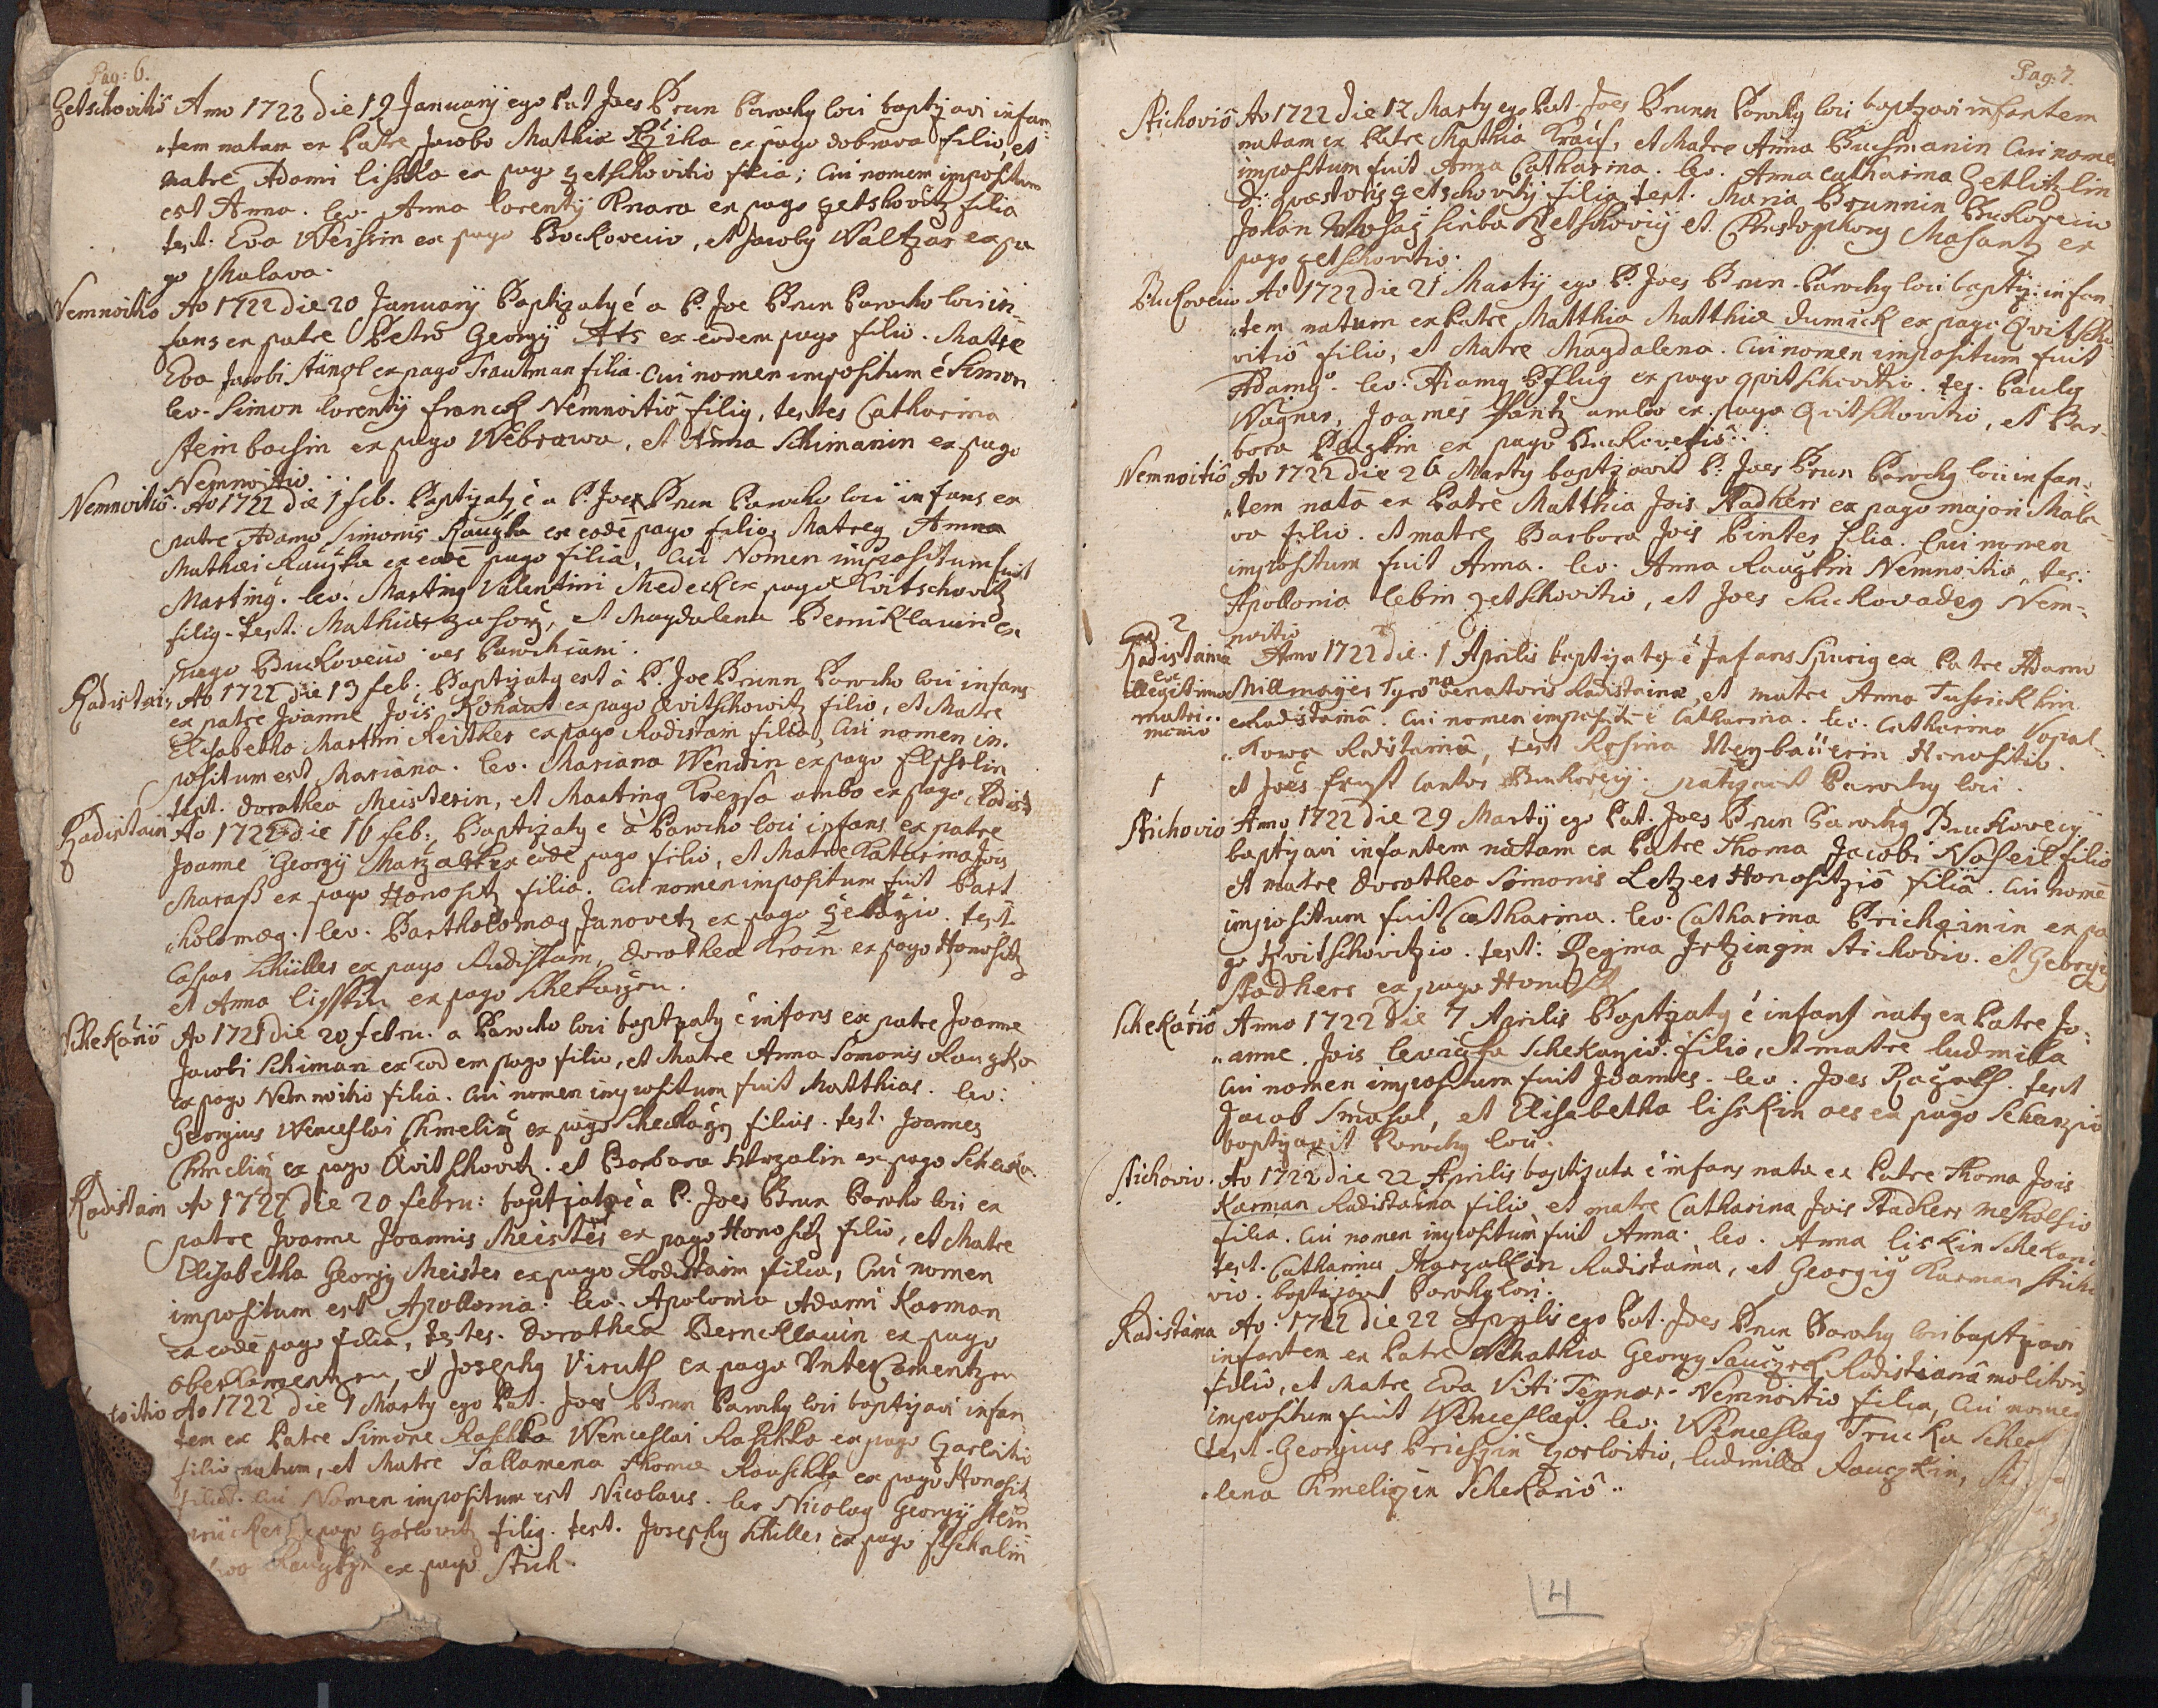 Pag: 6.
Getschovitiô Anno 1722 die 19 Januarij ego Pat Joes Brun Parochq loci baptizavi infan
tem natam ex Patre Jacobo Mathiæ ex pago dobrava filio, et
matre Adami lisska ex pago getschovitio filia; Cui nomen impositum
est Anna. lev. Anna lorentij Knara ex pago getshovitz filia
test: Eva Weissin ex pago Buckoveciô, et Jacobq Waltzar ex pa
go Malava.
Nemnoitio Ao 1722 die 20 Januarij Baptizatq é a P. Joe Brun Parocho loci in-
fans ex patre Petro Georgij Ats ex eodem pago filio. Matre
Eva Jacobi Stängl ex pago Trautman filia. Cui nomen impositum é Simon
lev. Simon lorentij franck Nemnoitiô filiq, testes Catharina
Steinbachin ex pago Webrowa, et Anna Schimanin ex pago
Nemnoitio.
Nemnoitiô. Ao 1722 die 1 feb. Baptizatq é a P. Joe Brun Parocho loci infans ex
patre Adamo Simonis Raugka ex eodē pago filio, Matreq Anna
Mathæi Raugka ex eodē pago filia, Cui Nomen impositum fuit
Martinq. lev. Martinq Valentini Medeck ex pago Kvitschovitz
filiq. test. Mathias zahorz, et Magdalena Berniklauin ex
pago Buckoveciô oes Parochiani.
Radistain Ao 1722 die 13 feb: Baptizatq est à P. Joe Brunn Parocho loci infans
ex patre Joanne Jois Kohaut ex pago Qvitschowitz filio, et Matre
Elisabetha Martini Reither ex pago Radistain filia, Cui nomen im-
positum est Mariana. lev. Mariana Wendin ex pago Elpsolin
test. dorothea Meisterin, et Martinq Krezsa ambo ex pago Radist:
Radistain Ao 1722 die 16 feb: Baptizatq e à Parocho loci infans ex patre
Joanne Georgij Marzalik ex eodē pago filio, et Matre Katarina Jois
Maraß ex pago Honositz filia. Cui nomen impositum fuit Bart
holomæq. lev. Bartholomæq Janovetz ex pago. test.
Caspar Schüller ex pago Radistain, dorothea Kroin ex pago Honositz
et Anna lisskin ex pago Schekarzen.
Schekariô Ao 1721 die 20 febru. a Parocho loci baptizatq é infans ex patre Joanne
Jacobi Schiman ex eodem pago filio, et Matre Anna Simonis Raugka
ex pago Nemnoitio filia. Cui nomen impositum fuit Matthias. lev:
Georgius Wenceslai Chmeliz ex pago Scheckarzen filius. test. Joannes
Chmeliz ex pago Qvitschovitz. et Barbara Strzalin ex pago Scheka
Radistain Ao 1722 die 20 febru: baptizatq é a P. Joes Brun Parocho loci ex
patre Joanne Joannis Meister ex pago Honositz filio, et Matre
Elisabetha Georgij Meister ex pago Radistain filia, Cui nomen
impositum est Apollonia. lev. Apolonia Adami Karman
ex eodē pago filia, testes. dorothea Bernecklauin ex pago
oberkamentzen, et Josephq Viruth ex pago Untercamentzen
Ao 1722 die 1 Marty ego Pat. Joes Brun Parochq loci baptizavi infan
tem ex Patre Simone Raschka Wenceslai Raschka ex pago Garloitio
filio natum, et Matre Sallamena Thomæ Rauschka ex pago Honositz
filia. Cui Nomen impositum est Nicolaus. lev Nicolaq Georgij Stein
ex pago Garlovitz filiq. test. Josephq Schiller ex pago Elschelin
ex pago Stich.
Pag: 7.
Stichoviô Ao 1722 die 12 Marty ego Pat. Joes Brunn Parochq loci baptizavi infantem
natam ex Patre Mathia Krais, et Matre Anna Buchmanin Cui nomē
impositum fuit Anna Catharina. lev. Anna catharina Getlitzlin
D: quæstoris getschovitij filia. test. Maria Brunnin Buckovecio
Johan scriba Getschoviij et Christophorq Masantz ex
pago getschovitio.
Buckoveciô Ao 1722 die 21 Martij ego P. Joes Brun Parochq loci baptiz: infan
tem natum ex Patre Matthia Matthiæ dumack ex pago Qvitscho
vitiô filio, et Matre Magdalena. Cui nomen impositum fuit
Adamq. lev. Adamq Pflug ex pago qvitschovitio. tes. Paulq
Wagner, Joannes Hantz ambo ex pago Qvitschovitio, et Bar-
bara Plazkin ex pago Buckovetiô.
Nemnoitiô Ao 1722 die 26 Marty baptizavit P. Joes Brun Parochq loci infan-
tem natā ex Patre Matthia Jois Stadherr ex pago majori Mala
va filio. et matre Barbara Jois Pinter filia. Cui nomen
impositum fuit Anna. lev. Anna Raugkin Nemnoitio, tes:
Apollonia lebin getschovitio, et Joes Suckovadeq Nem-
noitio
2
Radistaina Anno 1722 die 1 Aprilis baptizatq é Infans Spuriq ex Patre Adamo
ex illegitimo matri-monio Millmayer Tyrone venatoris Radistainæ, et matre Anna Tussickhin
ex Radistainâ. Cui nomen impositū é Catharina. lev. Catharina Vopal-
kowa Radistainâ, test Rosina Neybauerin Honositio.
et Joes Ernst Cantor Buckovecij. batizavit Parochq loci.
1
Stichovio Anno 1722 die 29 Martij ego Pat. Joes Brun Parochq Buckovecij
baptizavi infantem natam ex Patre Thoma Jacobi Noseil filio
et matre dorothea Simonis Letzer Honositziô filiâ. Cui nomē
impositum fuit Catharina. lev. Catharina Bricheinin ex pa
go Kvitschovitzio. test: Regina Irtzingin Stichovio. et Georgiq
Stadherr ex pago Honositz
Schekariô Anno 1722 die 7 Aprilis Baptizatq é infans natq ex Patre Jo-
anne Jois levicka Schekarzio filio, et matre ludmila
Cui nomen impositum fuit Joannes. lev. Joes. test
Jacob Smasal, et Elisabetha lisskin oes ex pago Schekarzio
baptizavit Parochq loci.
Stichovio. Ao 1722 die 22 Aprilis baptizata é infans nata ex Patre Thoma Jois
Karman Radistaina filio, et matre Catharina Jois Stadherr
filia. Cui nomen impositum fuit Anna. lev. Anna liskin Schekari
test. Catharina Marzalkin Radistaina, et Georgiq Karman Sticho
vio. baptizavit Parochq loci.
Radistaina Ao 1722 die 22 Aprilis ego Pat. Joes Brun Parochq loci baptizavi
infantem ex Patre Mathia Georgij Radistainâ molitoris
filio, et Matre Eva Viti Nemnoitio filia, Cui nomen
impositum fuit Wenceslaq. lev. Wenceslaq Trucka
test. Georgius Garloitio, ludmilla Raugkin,
lena Chmelizin Schekariô.
4